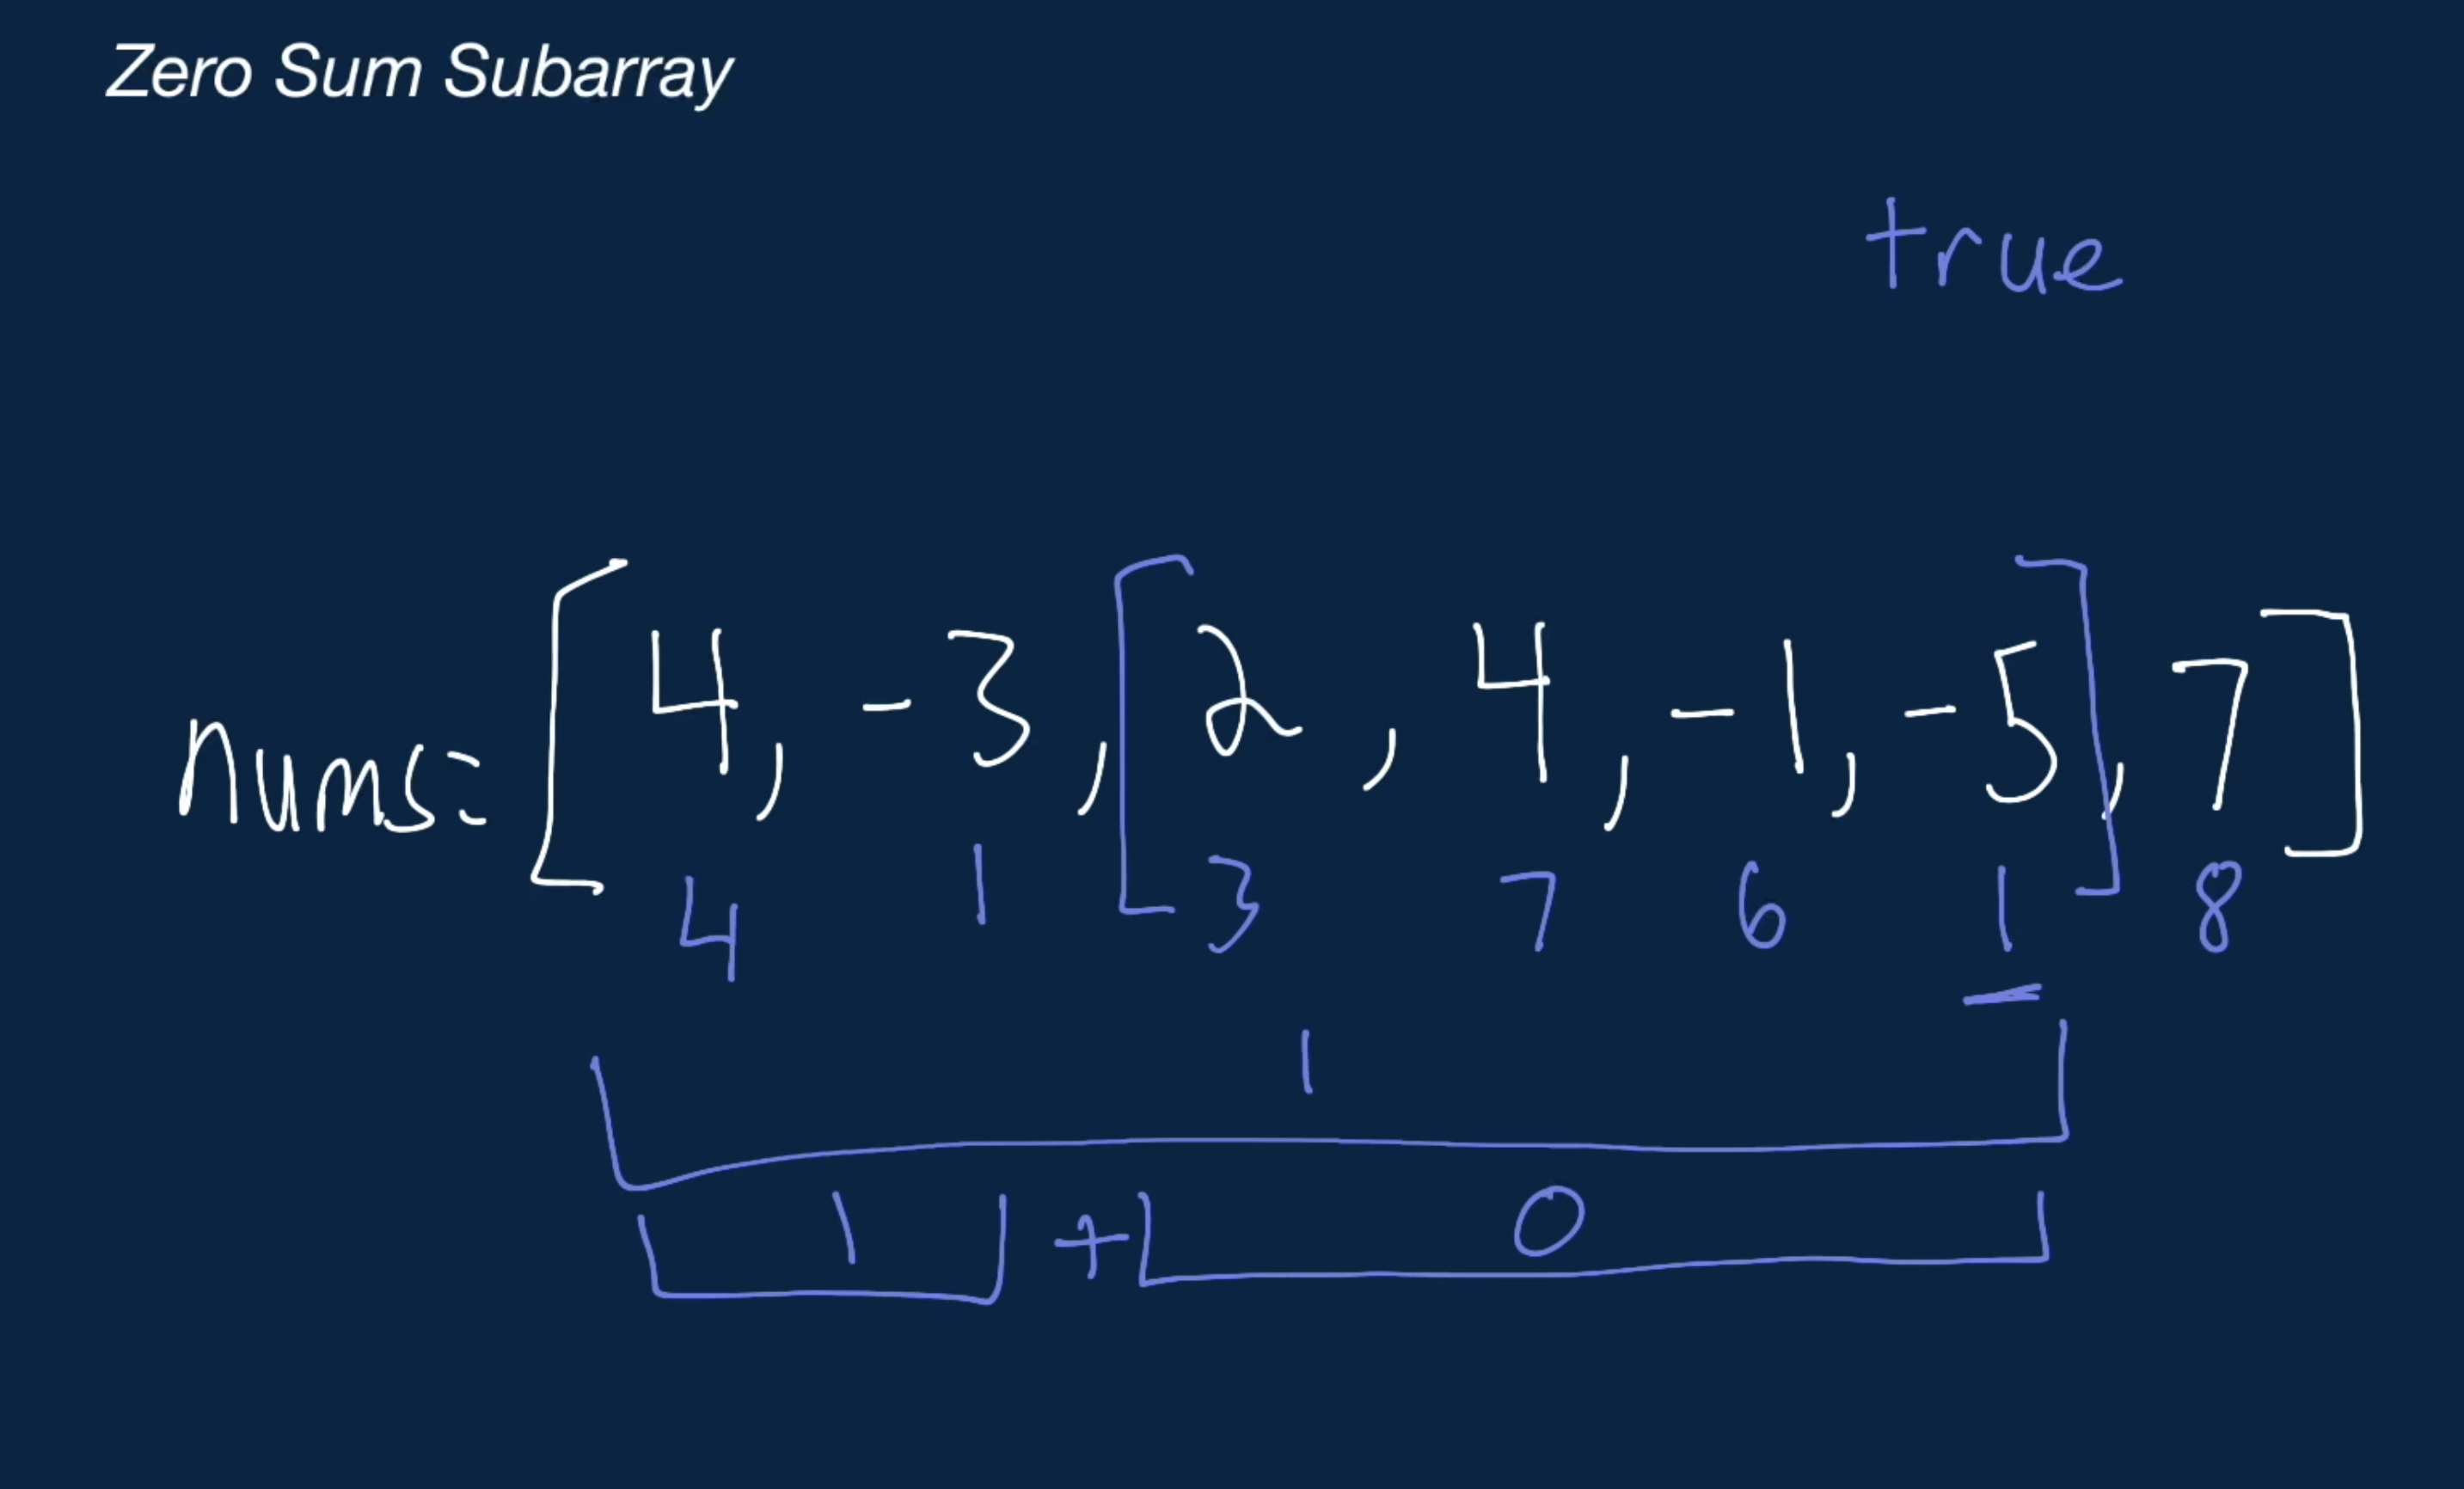 Zero Sum Subarray
true
nums=[4, -3, [2, 4, -1, -5], 7]
4 1 3 7 6 1 8
1
1 + 0